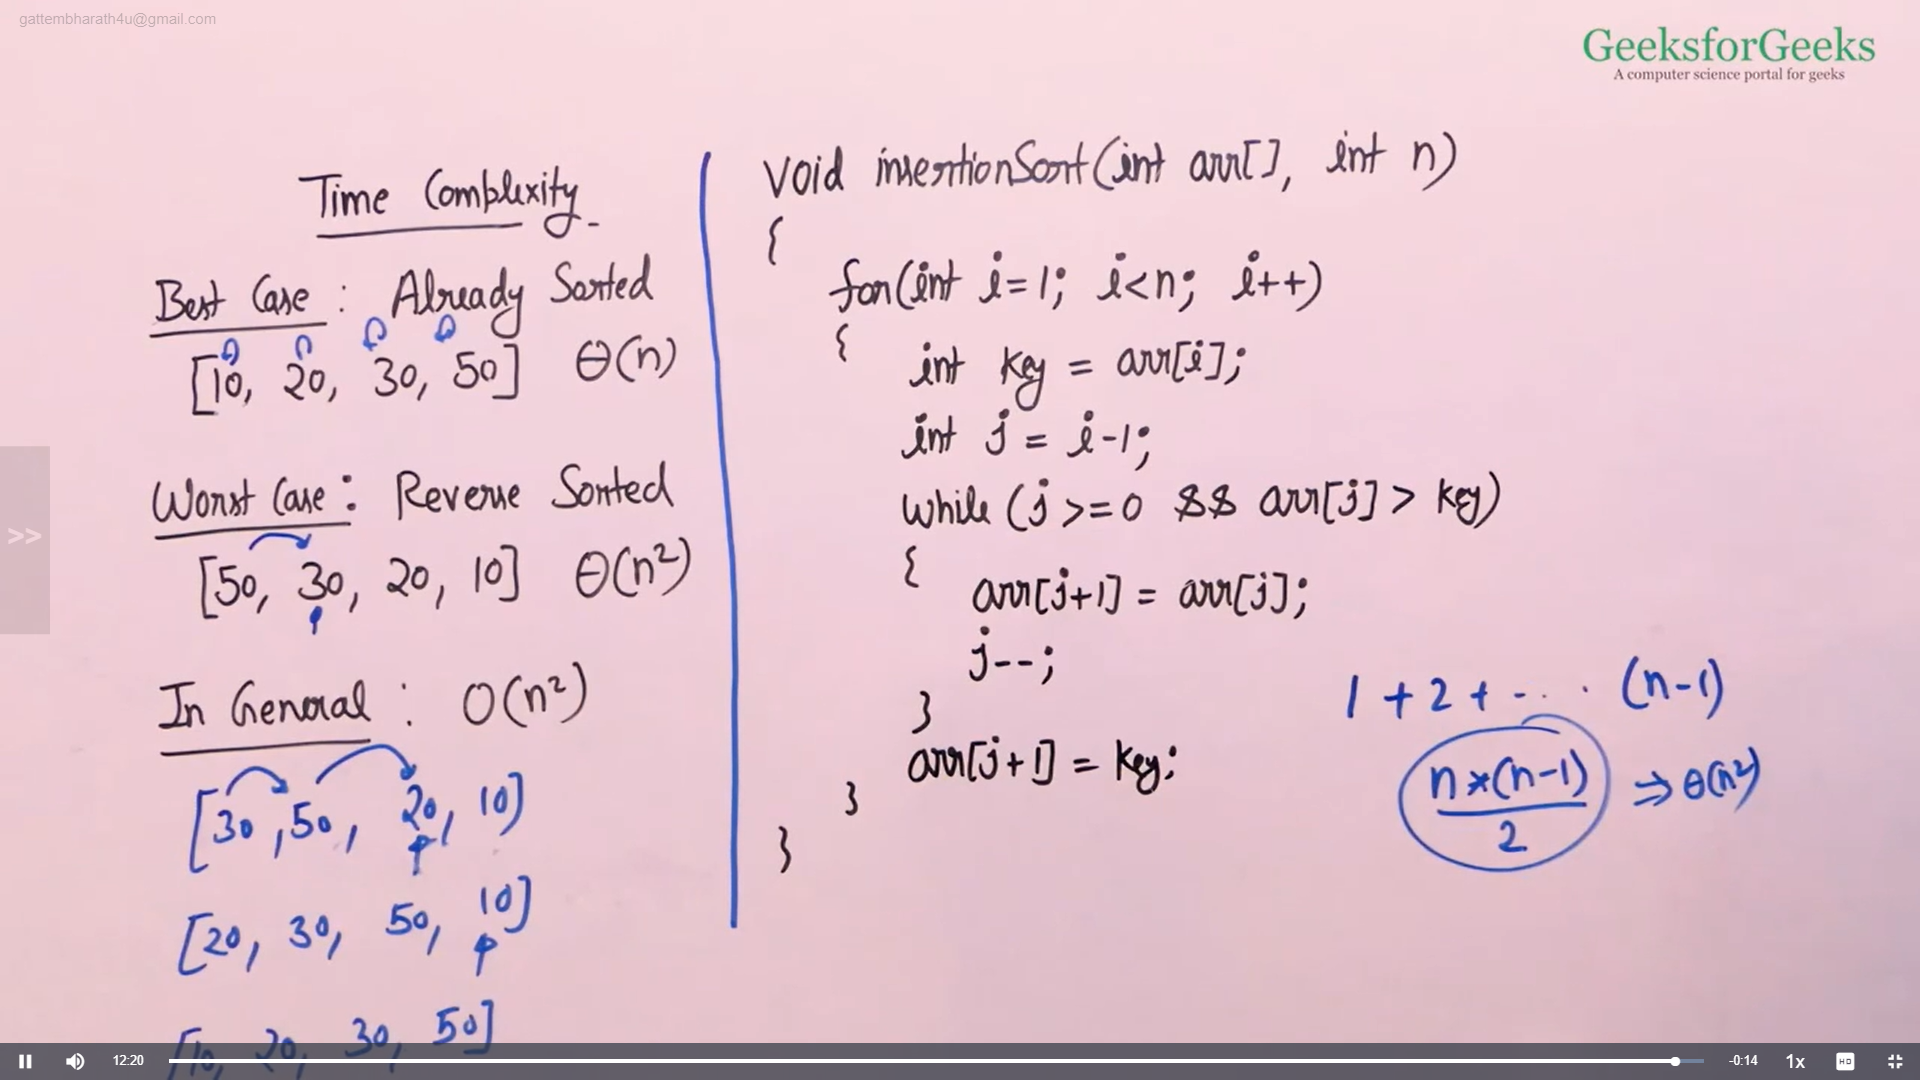 gattembharath4u@gmail.com
GeeksforGeeks
A computer science portal for geeks
Time Complexity
Best Case : Already Sorted
[10, 20, 30, 50] θ(n)
Worst Case : Reverse Sorted
[50, 30, 20, 10] θ(n²)
In General : O(n²)
[30, 50, 20, 10]
[20, 30, 50, 10]
[10, 20, 30, 50]
void insertionSort(int arr[], int n)
{
for(int i=1; i<n; i++)
{
int key = arr[i];
int j = i-1;
while (j >=0 && arr[j] > key)
{
arr[j+1] = arr[j];
j--;
}
arr[j+1] = key;
}
}
1 + 2 + -... (n-1)
n*(n-1)
2
⇒ θ(n²)
>>
12:20
-0:14
1x
HD